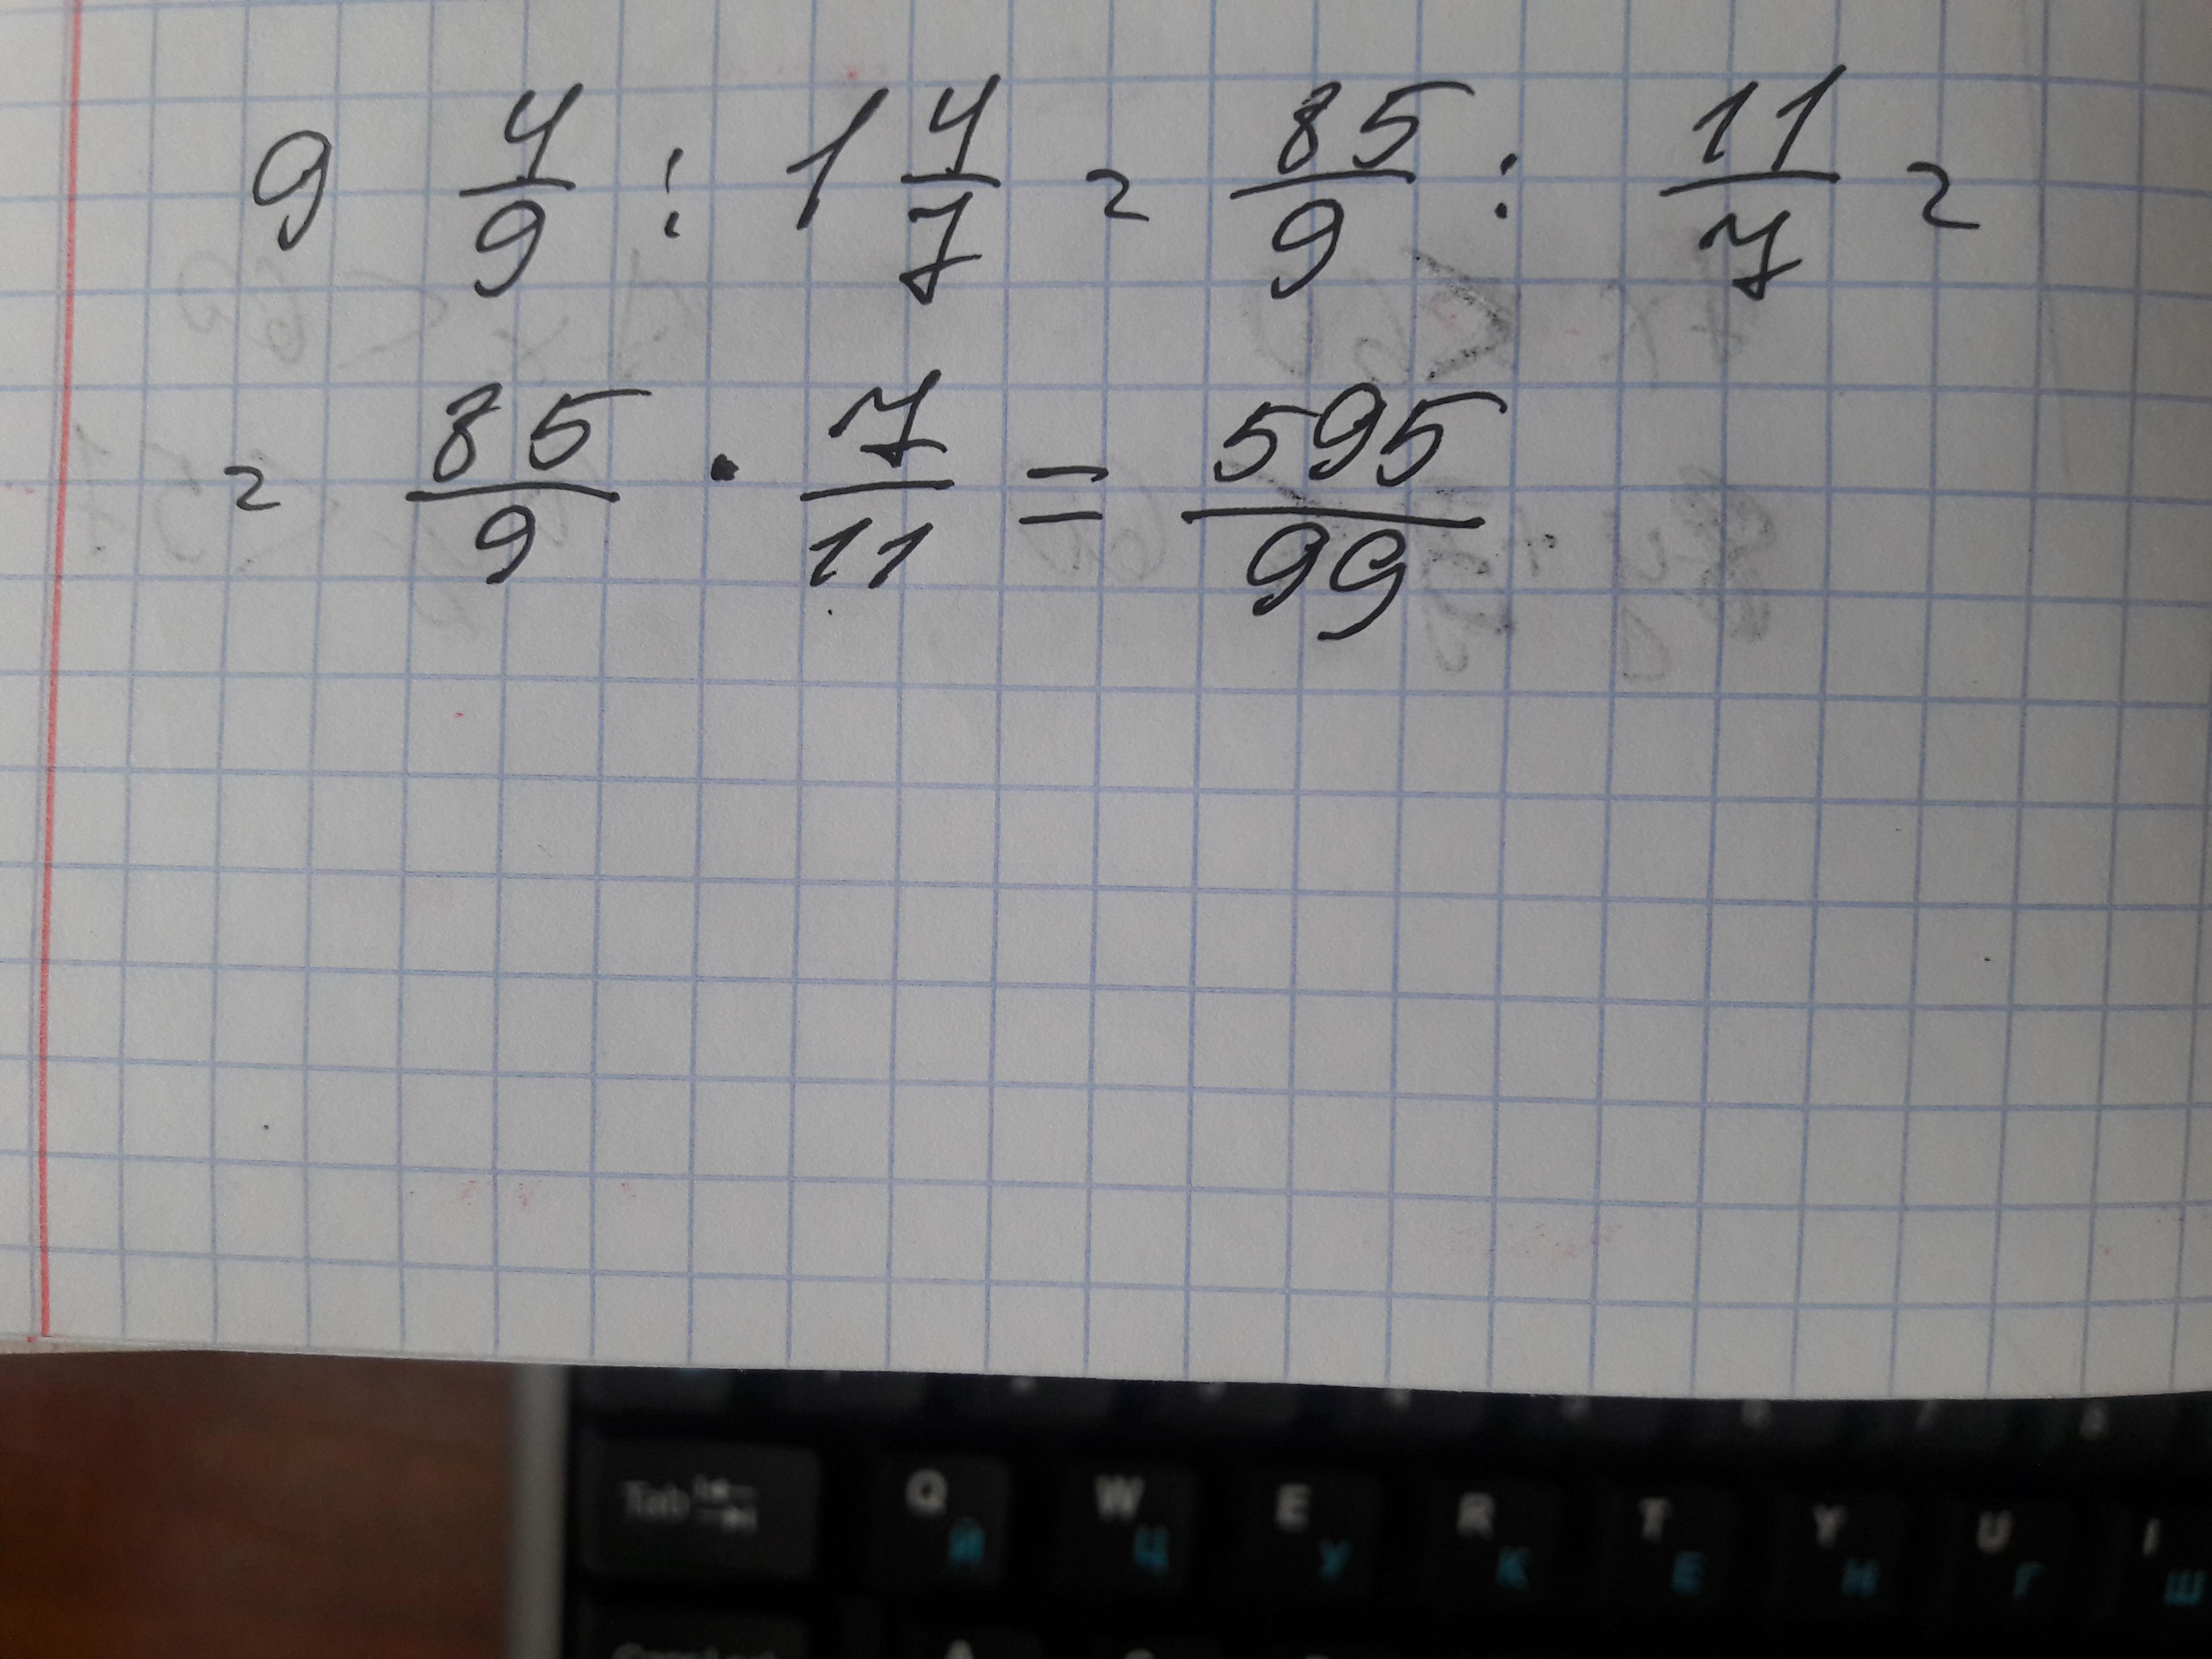 9 4/9 : 1 4/7 = 85/9 : 11/7 =
= 85/9 · 7/11 = 595/99
Tab Q Й W Ц E У R К T Е Y Н U Г I Ш